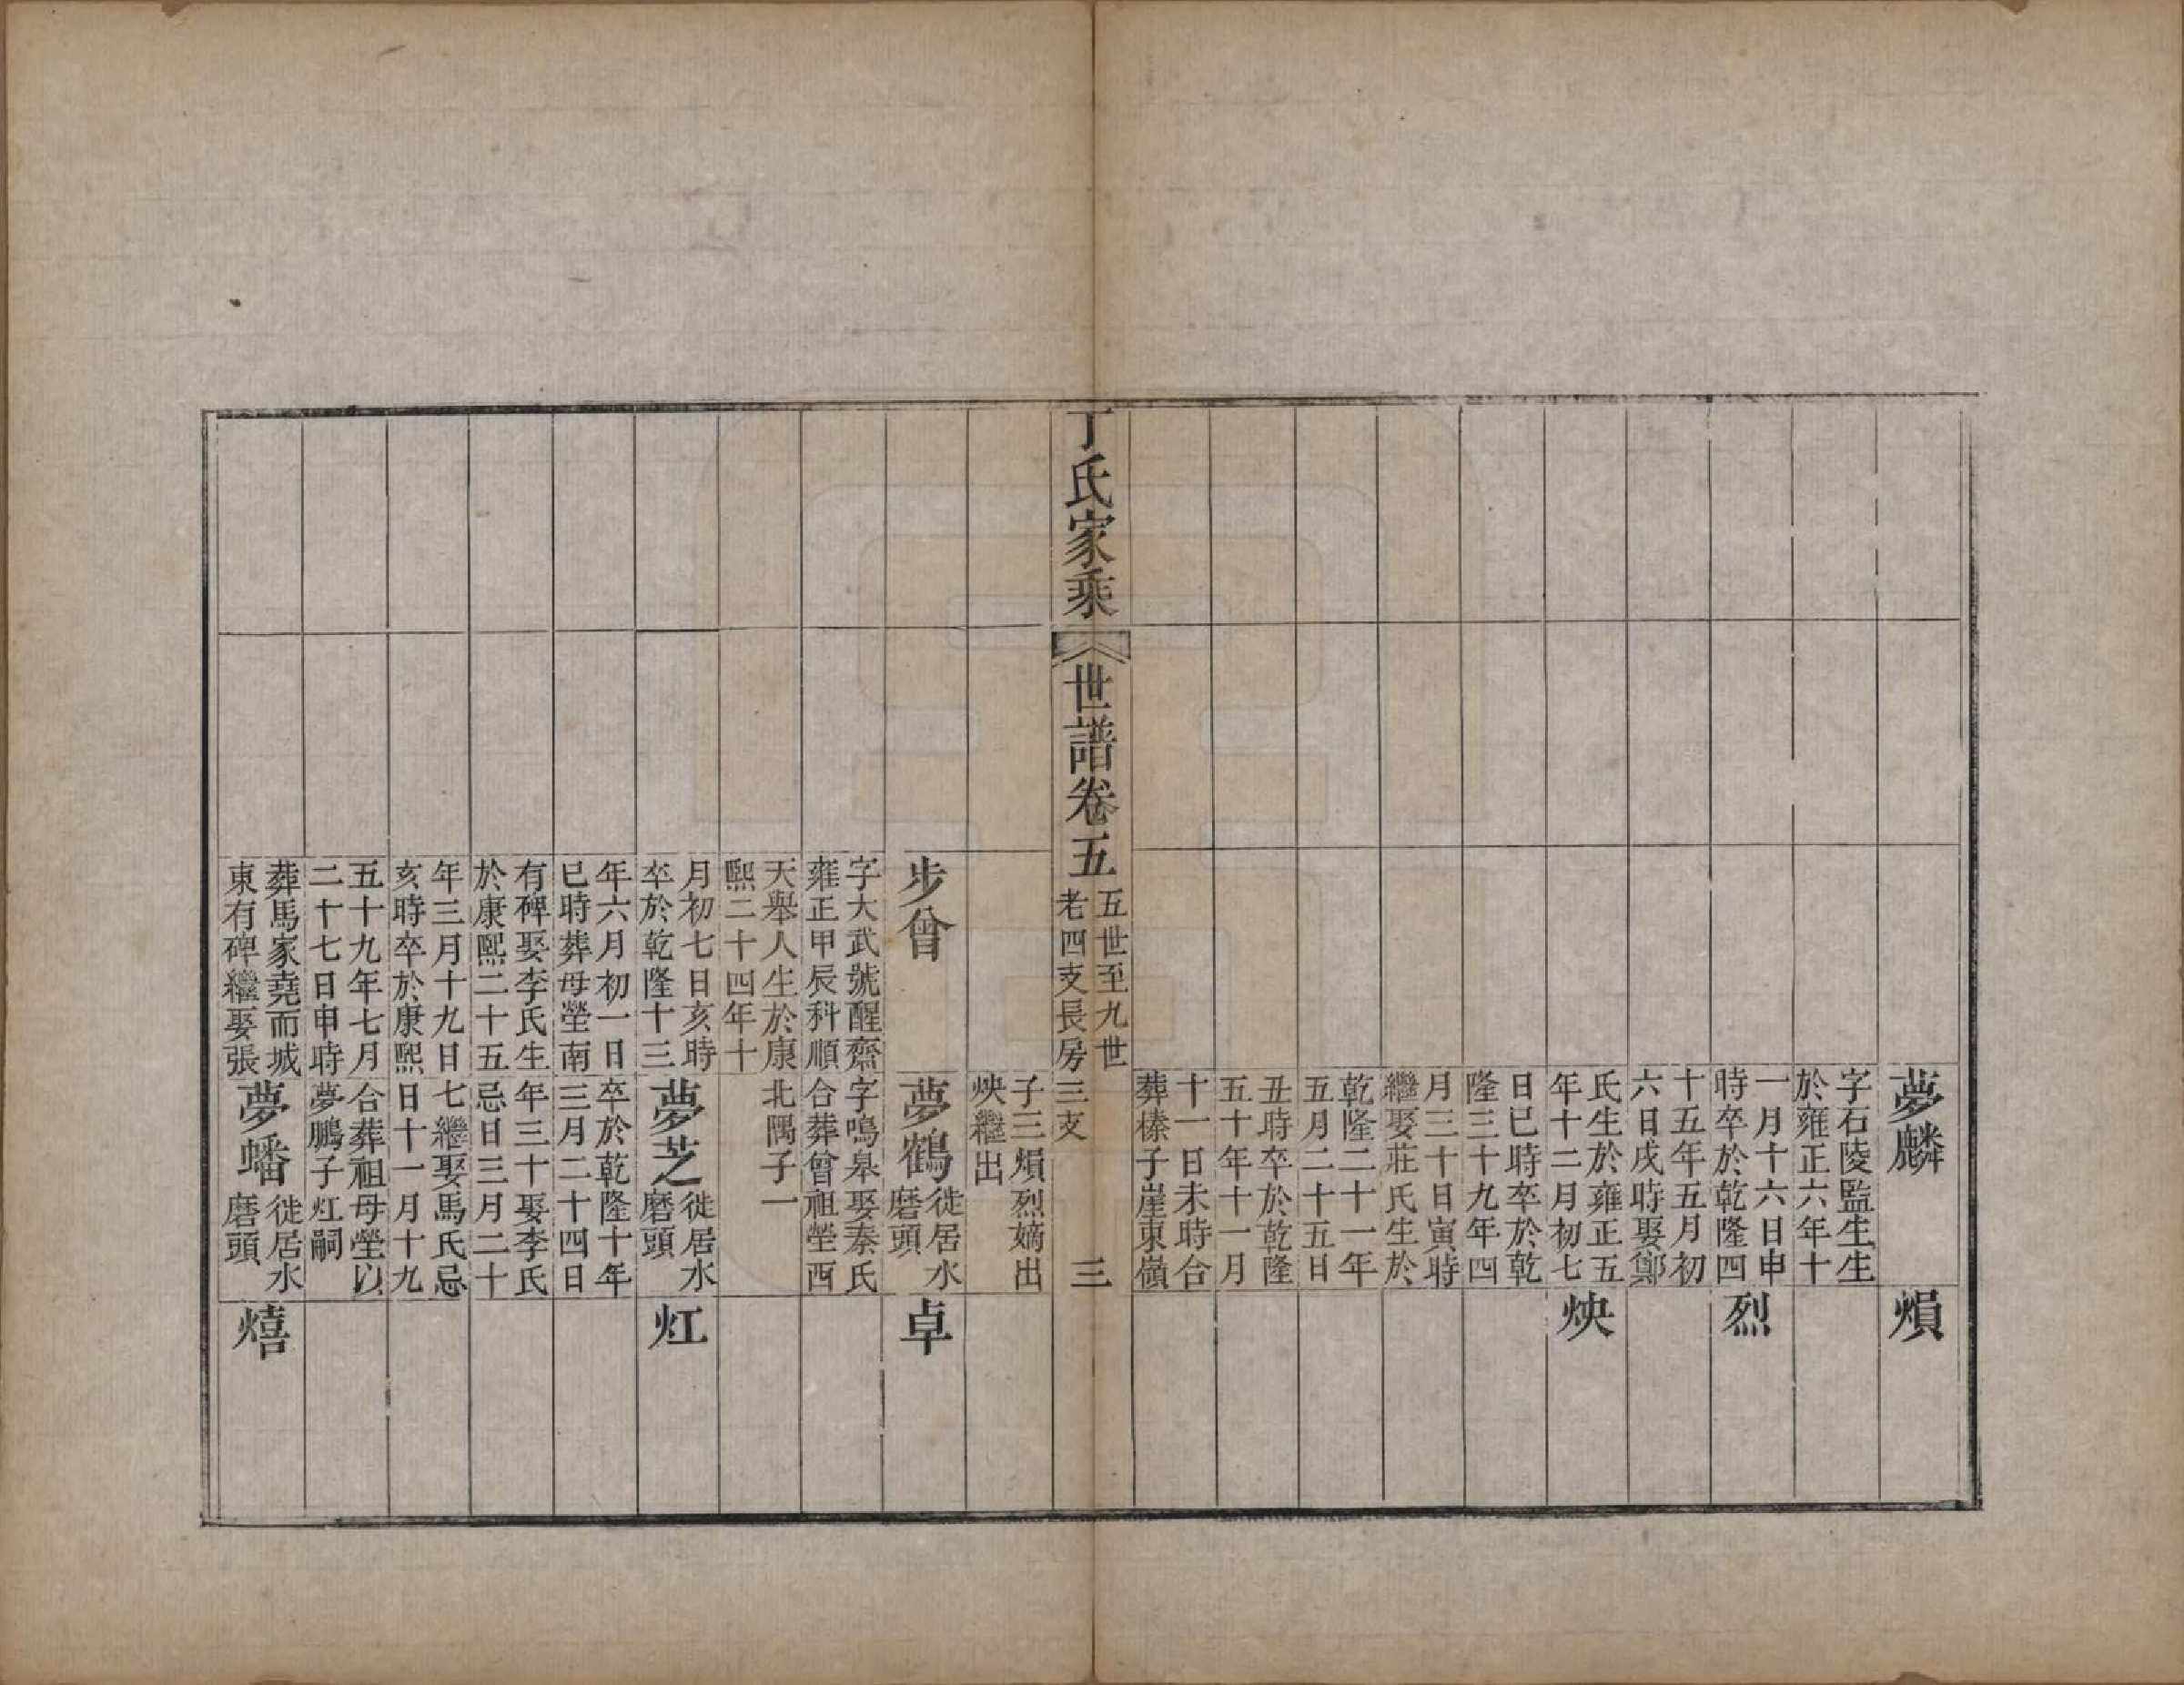 夢麟
字石陵監生生
於雍正六年十
一月十六日申
時卒於乾隆四
十五年五月初
六日戌時娶鄭
氏生於雍正五
年十二月初七
日巳時卒於乾
隆三十九年四
月三十日寅時
繼娶莊氏生於
乾隆二十一年
五月二十五日
丑時卒於乾隆
五十年十一月
十一日未時合
葬榛子崖東嶺
熉
烈
炴
丁氏家乘
世譜卷五
五世至九世
老四支長房三支
三
子三熉烈嫡出
炴繼出
步曾
字大武號醒齋
雍正甲辰科順
天舉人生於康
熙二十四年十
月初七日亥時
卒於乾隆十三
年六月初一日
巳時葬母塋南
有碑娶李氏生
於康熙二十五
年三月十九日
亥時卒於康熙
五十九年七月
二十七日申時
葬馬家堯而城
東有碑繼娶張
夢鶴
徙居水
磨頭
字鳴皋娶秦氏
合葬曾祖塋西
北隅子一
夢芝
徙居水
磨頭
卒於乾隆十年
三月二十四日
年三十娶李氏
忌日三月二十
七繼娶馬氏忌
日十一月十九
合葬祖母塋以
夢鵬子灴嗣
夢蟠
徙居水
磨頭
卓
灴
熺